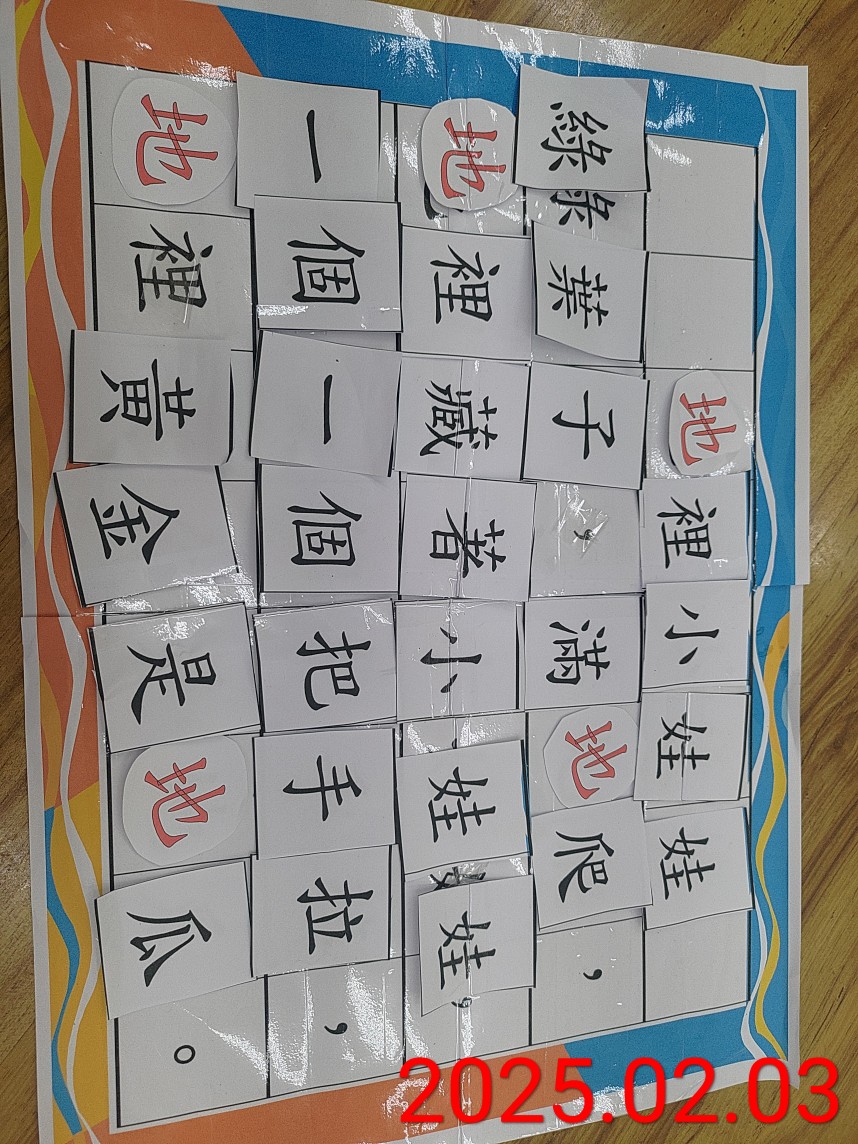 地裡小娃娃
綠葉子，滿地爬，
地裡藏著小娃娃，
一個一個把手拉，
地裡黃金是地瓜。
2025.02.03